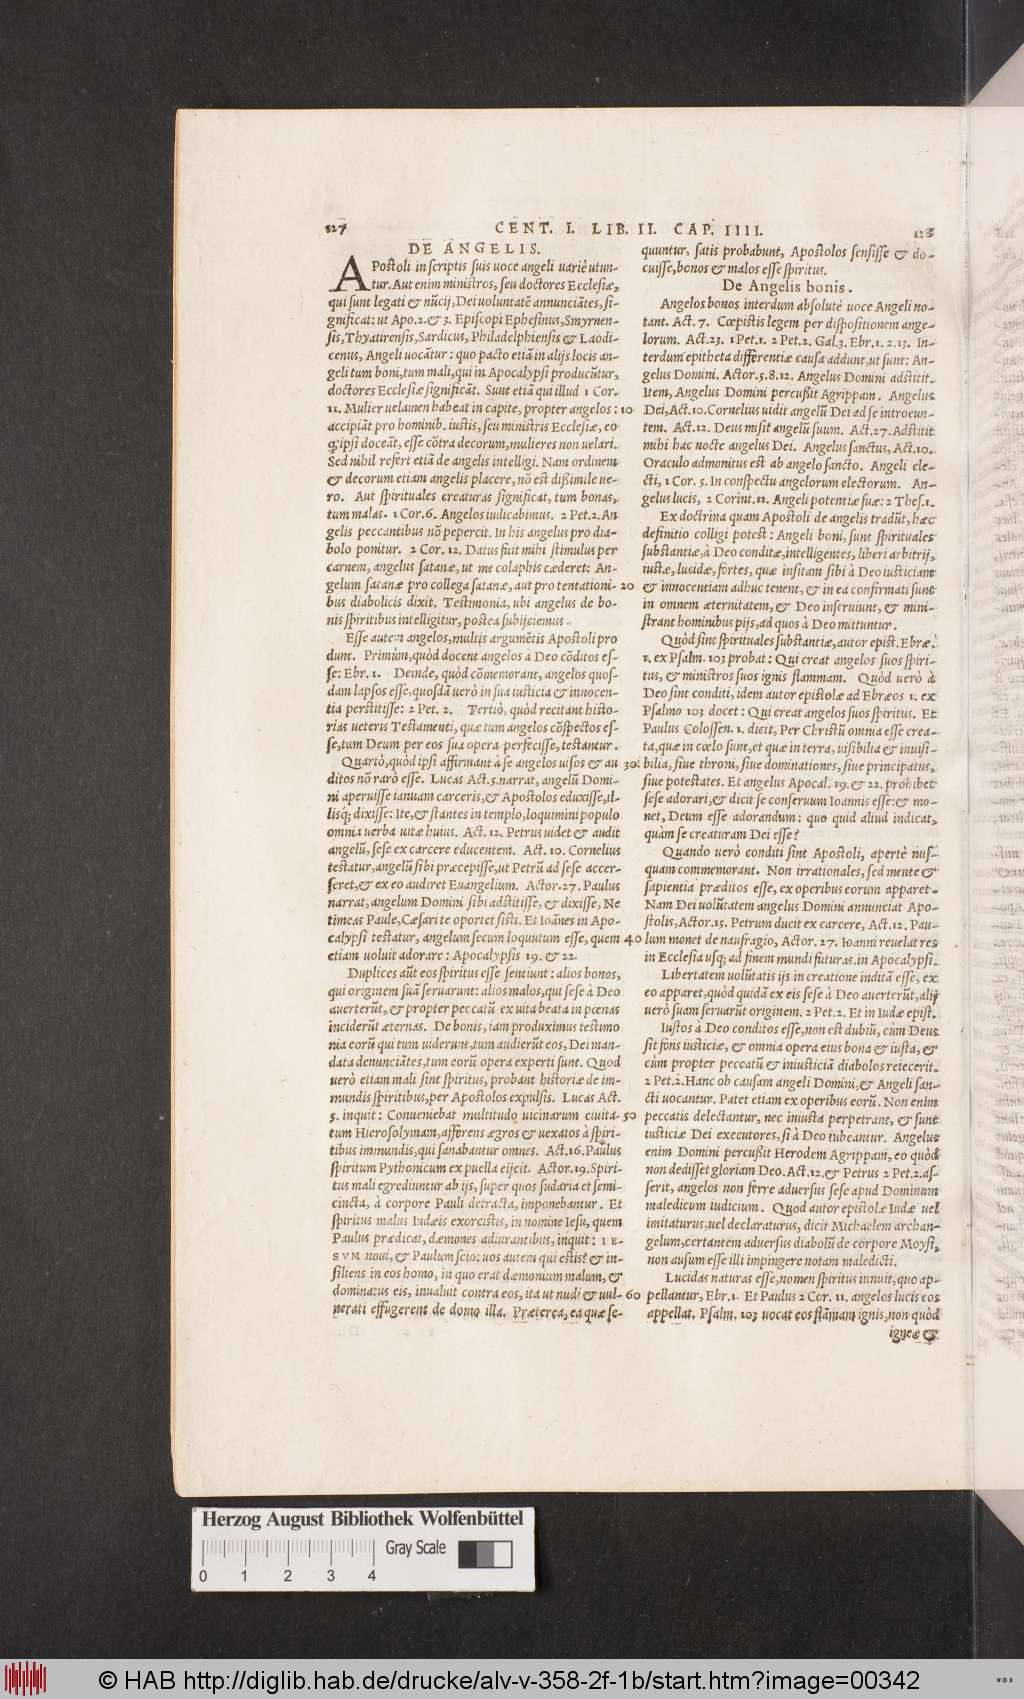 127 CENT. I. LIB. II. CAP. IIII. 128
DE ANGELIS.
APostoli in scriptis suis uoce angeli uariè utun-
tur. Aut enim ministros, seu doctores Ecclesiæ,
qui sunt legati & nũcij, Dei uoluntatẽ annunciãtes, si-
gnificat: ut Apo.2.& 3. Episcopi Ephesinus, Smyrnen-
sis, Thyatirensis, Sardicus, Philadelphiensis & Laodi-
cenus, Angeli uocãtur: quo pacto etiã in alijs locis an-
geli tum boni, tum mali, qui in Apocalypsi producũtur,
doctores Ecclesiæ significãt. Sunt etiã qui illud 1 Cor.
11. Mulier uelamen habeat in capite, propter angelos: 10
accipiãt pro hominib. iustis, seu ministris Ecclesiæ, eo
q; ipsi doceãt, esse cõtra decorum, mulieres non uelari.
Sed nihil refert etiã de angelis intelligi. Nam ordinem
& decorum etiam angelis placere, nõ est dißimile ue-
ro. Aut spirituales creaturas significat, tum bonas,
tum malas. 1 Cor.6. Angelos iudicabimus. 2 Pet.2. An
gelis peccantibus nõ pepercit. In his angelus pro dia-
bolo ponitur. 2 Cor. 12. Datus fuit mihi stimulus per
carnem, angelus satanæ, ut me colaphis cæderet: An-
gelum satanæ pro collega satanæ, aut pro tentationi- 20
bus diabolicis dixit. Testimonia, ubi angelus de bo-
nis spiritibus intelligitur, postea subijciemus.
Esse autem angelos, multis argumẽtis Apostoli pro
dunt. Primùm, quòd docent angelos à Deo cõditos es-
se: Ebr. 1. Deinde, quòd cõmemorant, angelos quos-
dam lapsos esse, quosdã uerò in sua iusticia & innocen-
tia perstitisse: 2 Pet. 2. Tertiò, quòd recitant histo-
rias ueteris Testamenti, quæ tum angelos cõspectos es-
se, tum Deum per eos sua opera perfecisse, testantur.
Quartò, quòd ipsi affirmant à se angelos uisos & au 30
ditos nõ rarò esse. Lucas Act.5. narrat, angelũ Domi-
ni aperuisse ianuam carceris, & Apostolos eduxisse, il-
lisq; dixisse: Ite, & stantes in templo, loquimini populo
omnia uerba uitæ huius. Act. 12. Petrus uidet & audit
angelũ, sese ex carcere educentem. Act. 10. Cornelius
testatur, angelũ sibi præcepisse, ut Petrũ ad sese accer-
seret, & ex eo audiret Euangelium. Actor.27. Paulus
narrat, angelum Domini sibi adstitisse, & dixisse, Ne
timeas Paule, Cæsari te oportet sisti. Et Ioãnes in Apo-
calypsi testatur, angelum secum loquutum esse, quem 40
etiam uoluit adorare: Apocalypsis 19. & 22.
Duplices aũt eos spiritus esse sentiunt: alios bonos,
qui originem suã seruarunt: alios malos, qui sese à Deo
auerterũt, & propter peccatũ ex uita beata in pœnas
inciderũt æternas. De bonis, iam produximus testimo
nia eorũ qui tum uiderunt, tum audierũt eos, Dei man-
data denunciãtes, tum eorũ opera experti sunt. Quod
uerò etiam mali sint spiritus, probant historiæ de im-
mundis spiritibus, per Apostolos expulsis. Lucas Act.
5. inquit: Conueniebat multitudo uicinarum ciuita- 50
tum Hierosolymam, afferens ægros & uexatos à spiri-
tibus immundis, qui sanabantur omnes. Act.16. Paulus
spiritum Pythonicum ex puella eijcit. Actor.19. Spiri-
tus mali egrediuntur ab ijs, super quos sudaria et semi-
cincta, à corpore Pauli detracta, imponebantur. Et
spiritus malus Iudæis exorcistis, in nomine Iesu, quem
Paulus prædicat, dæmones adiurantibus, inquit: IE-
SVM noui, & Paulum scio: uos autem qui estis? & in-
siliens in eos homo, in quo erat dæmonium malum, &
dominatus eis, inualuit contra eos, ita ut nudi & uul- 60
nerati effugerent de domo illa. Præterea, ea quæ se-
quuntur, satis probabunt, Apostolos sensisse & do-
cuisse, bonos & malos esse spiritus.
De Angelis bonis.
Angelos bonos interdum absolutè uoce Angeli no-
tant. Act. 7. Cœpistis legem per dispositionem ange-
lorum. Act.23. 1 Pet.1. 2 Pet.2. Gal.3. Ebr.1.2.13. In-
terdum epitheta differentiæ causa addunt, ut sunt: An-
gelus Domini. Actor.5.8.12. Angelus Domini adstitit.
Item, Angelus Domini percußit Agrippam. Angelus
Dei, Act.10. Cornelius uidit angelũ Dei ad se introeun-
tem. Act.12. Deus misit angelũ suum. Act.27. Adstitit
mihi hac nocte angelus Dei. Angelus sanctus, Act.10.
Oraculo admonitus est ab angelo sancto. Angeli ele-
cti, 1 Cor. 5. In conspectu angelorum electorum. An-
gelus lucis, 2 Corint.11. Angeli potentiæ suæ: 2 Thes.1.
Ex doctrina quam Apostoli de angelis tradũt, hæc
definitio colligi potest: Angeli boni, sunt spirituales
substantiæ, à Deo conditæ, intelligentes, liberi arbitrij,
iustæ, lucidæ, fortes, quæ insitam sibi à Deo iusticiam
& innocentiam adhuc tenent, & in ea confirmati sunt
in omnem æternitatem, & Deo inseruiunt, & mini-
strant hominibus pijs, ad quos à Deo mittuntur.
Quòd sint spirituales substantiæ, autor epist. Ebræ.
1. ex Psalm. 103 probat: Qui creat angelos suos spiri-
tus, & ministros suos ignis flammam. Quòd uerò à
Deo sint conditi, idem autor epistolæ ad Ebræos 1. ex
Psalmo 103 docet: Qui creat angelos suos spiritus. Et
Paulus Colossen. 1. dicit, Per Christũ omnia esse crea-
ta, quæ in cœlo sunt, et quæ in terra, uisibilia & inuisi-
bilia, siue throni, siue dominationes, siue principatus,
siue potestates. Et angelus Apocal. 19.& 22. prohibet
sese adorari, & dicit se conseruum Ioannis esse: & mo-
net, Deum esse adorandum: quo quid aliud indicat,
quàm se creaturam Dei esse?
Quando uerò conditi sint Apostoli, apertè nus-
quam commemorant. Non irrationales, sed mente &
sapientia præditos esse, ex operibus eorum apparet.
Nam Dei uolũtatem angelus Domini annunciat Apo-
stolis, Actor.15. Petrum ducit ex carcere, Act.12. Pau-
lum monet de naufragio, Actor. 27. Ioanni reuelat res
in Ecclesia usq; ad finem mundi futuras. in Apocalypsi.
Libertatem uolũtatis ijs in creatione inditã esse, ex
eo apparet, quòd quidã ex eis sese à Deo auerterũt, alij
uerò suam seruarũt originem. 2 Pet.2. Et in Iudæ epist.
Iustos à Deo conditos esse, non est dubiũ, cùm Deus
sit fons iusticiæ, & omnia opera eius bona & iusta, &
cùm propter peccatũ & iniusticiã diabolos reiecerit.
2 Pet.2. Hanc ob causam angeli Domini, & Angeli san-
cti uocantur. Patet etiam ex operibus eorũ. Non enim
peccatis delectantur, nec iniusta perpetrant, & sunt
iusticiæ Dei executores, si à Deo iubeantur. Angelus
enim Domini percußit Herodem Agrippam, eo quòd
non dedisset gloriam Deo. Act.12.& Petrus 2 Pet.2. as-
serit, angelos non ferre aduersus sese apud Dominum
maledicum iudicium. Quod autor epistolæ Iudæ uel
imitaturus, uel declaraturus, dicit Michaelem archan-
gelum, certantem aduersus diabolũ de corpore Moysi,
non ausum esse illi impingere notam maledicti.
Lucidas naturas esse, nomen spiritus innuit, quo ap-
pellantur, Ebr.1. Et Paulus 2 Cor. 11. angelos lucis eos
appellat. Psalm. 103 uocat eos flãmam ignis, non quòd
igneæ &
Herzog August Bibliothek Wolfenbüttel
Gray Scale
0 1 2 3 4
© HAB http://diglib.hab.de/drucke/alv-v-358-2f-1b/start.htm?image=00342